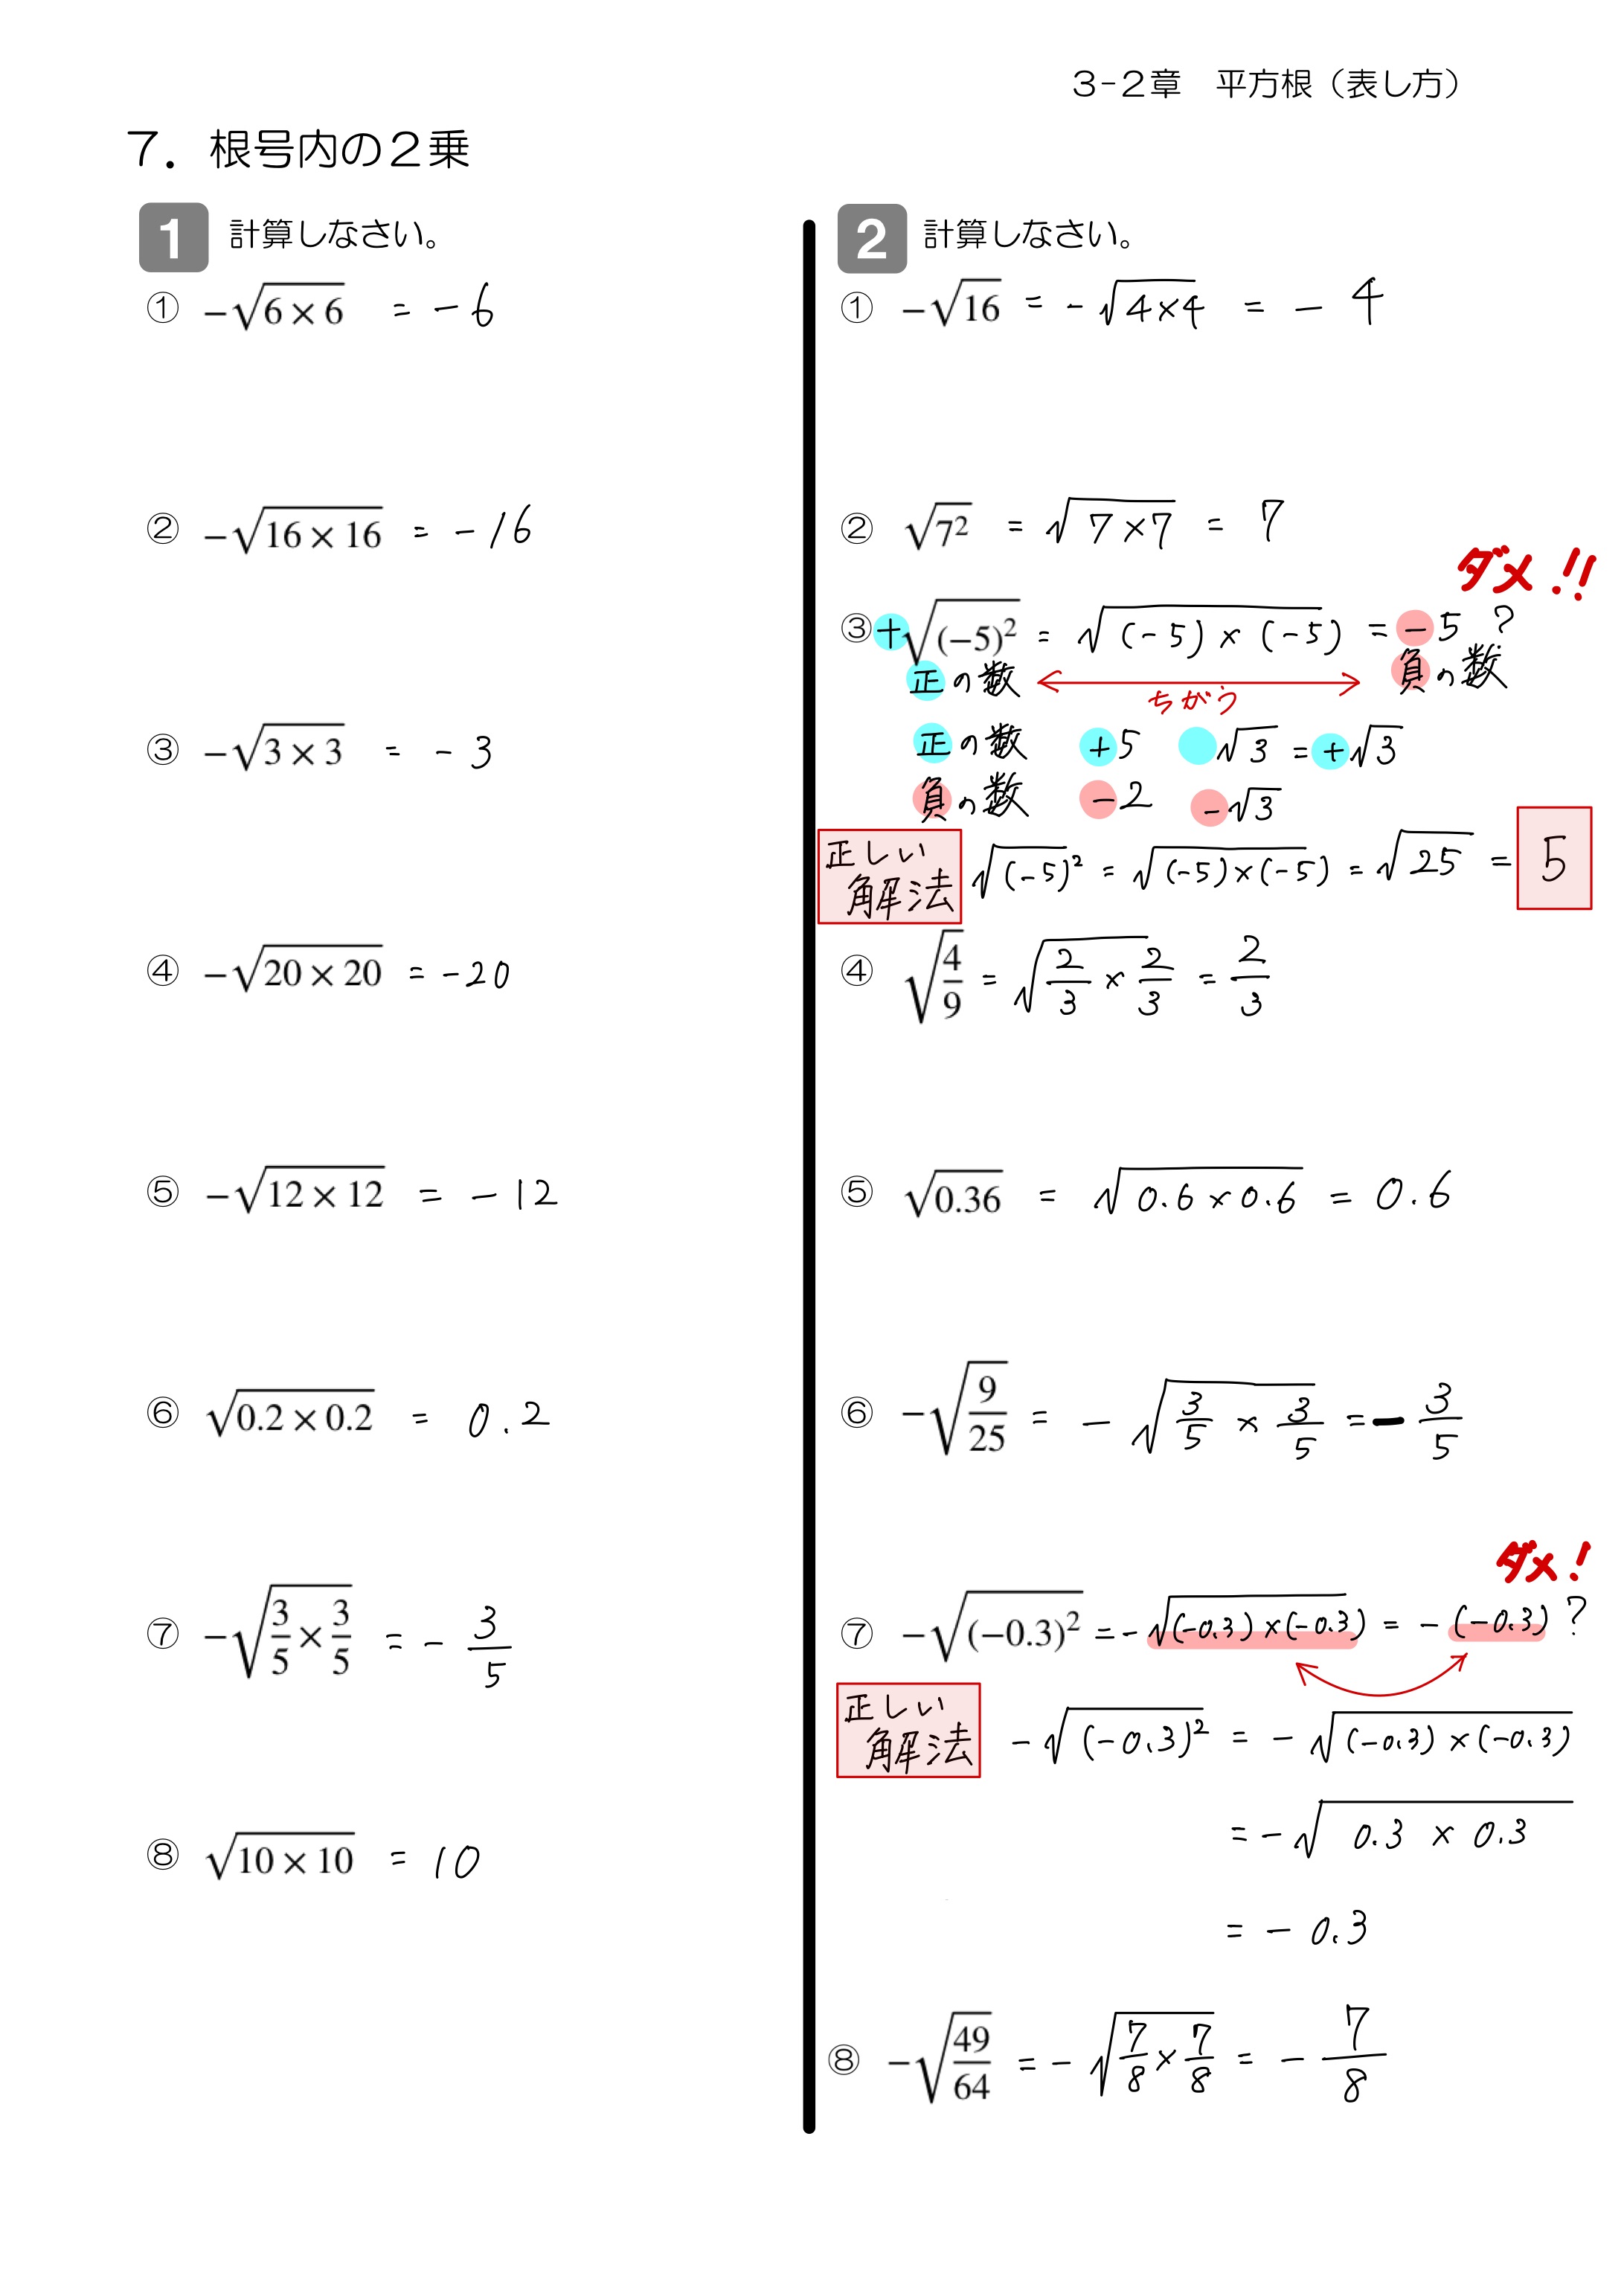 3-2章 平方根（表し方）
7. 根号内の2乗
1 計算しなさい。
① −√(6×6) = −6
② −√(16×16) = −16
③ −√(3×3) = −3
④ −√(20×20) = −20
⑤ −√(12×12) = −12
⑥ √(0.2×0.2) = 0.2
⑦ −√(3/5×3/5) = −3/5
⑧ √(10×10) = 10
2 計算しなさい。
① −√16 = −√(4×4) = −4
② √7² = √(7×7) = 7
ダメ!!
③ +√(−5)² = √((−5)×(−5)) = −5 ?
正の数 ちがう 負の数
正の数 +5 √3 = +√3
負の数 −2 −√3
正しい解法 √(−5)² = √((−5)×(−5)) = √25 = 5
④ √(4/9) = √(2/3×2/3) = 2/3
⑤ √0.36 = √(0.6×0.6) = 0.6
⑥ −√(9/25) = −√(3/5×3/5) = −3/5
ダメ!
⑦ −√(−0.3)² = −√((−0.3)×(−0.3)) = −(−0.3) ?
正しい解法 −√(−0.3)² = −√((−0.3)×(−0.3))
= −√(0.3×0.3)
= −0.3
⑧ −√(49/64) = −√(7/8×7/8) = −7/8